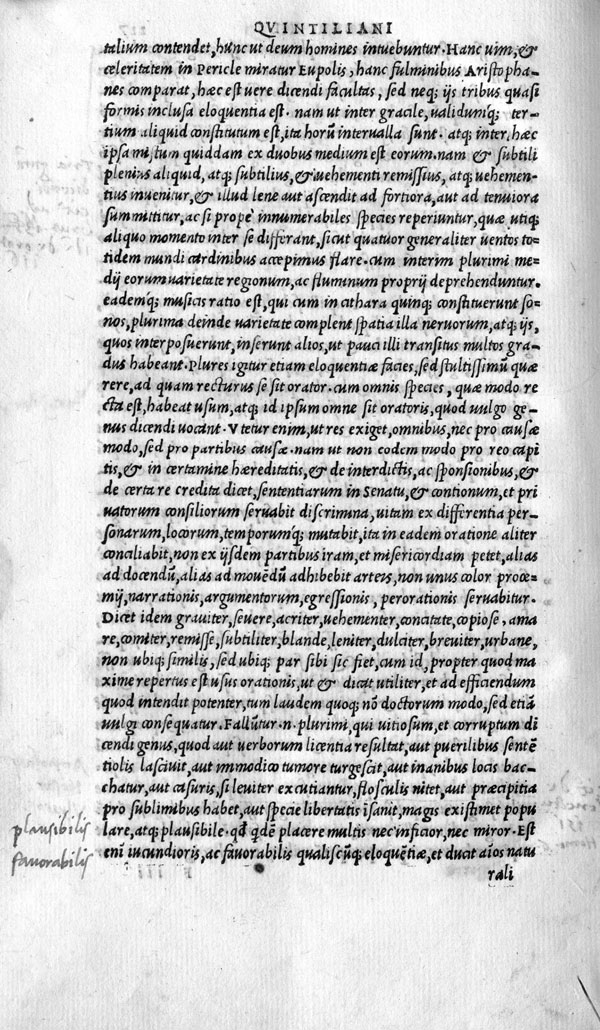 QVINTILIANI
talium contendet, hunc ut deum homines intuebuntur. Hanc uim, &
cæleritatem in Pericle miratur Eupolis, hanc fulminibus Aristopha-
nes comparat, hæc est uere dicendi facultas, sed neq; ijs tribus quasi
formis inclusa eloquentia est. nam ut inter gracile, ualidumq; ter-
tium aliquid constitutum est, ita horũ interualla sunt. atq; inter, hæc
ipsa mistum quiddam ex duobus medium est eorum. nam & subtili
plenius aliquid, atq; subtilius, & uehementi remissius, atq; uehemen-
tius inuenitur, & illud lene aut ascendit ad fortiora, aut ad tenuiora
summittitur, ac si prope innumerabiles species reperiuntur, quæ utiq;
aliquo momento inter se differant, sicut quatuor generaliter uentos to-
tidem mundi cardinibus accepimus flare. cum interim plurimi me-
dij eorum uarietate regionum, ac fluminum proprij deprehenduntur.
eademq; musicis ratio est, qui cum in cithara quinq; constituerunt so-
nos, plurima deinde uarietate complent spatia illa neruorum, atq; ijs,
quos interposuerunt, inserunt alios, ut pauci illi transitus multos gra-
dus habeant. Plures igitur etiam eloquentiæ facies, sed stultissimũ quæ
rere, ad quam recturus se sit orator. cum omnis species, quæ modo re
cta est, habeat usum, atq; id ipsum omne sit oratoris, quod uulgo ge-
nus dicendi uocant. Vtetur enim, ut res exiget, omnibus, nec pro causæ
modo, sed pro partibus causæ. nam ut non eodem modo pro reo capi
tis, & in certamine hæreditatis, & de interdictis, ac sponsionibus, &
de certa re credita dicet, sententiarum in Senatu, & contionum, et pri
uatorum consiliorum seruabit discrimina, uitam ex differentia per-
sonarum, locorum, temporumq; mutabit, ita in eadem oratione aliter
conciliabit, non ex ijsdem partibus iram, et misericordiam petet, alias
ad docendũ, alias ad mouẽdũ adhibebit artens, non unus color proœ-
mij, narrationis, argumentorum, egressionis, perorationis seruabitur.
Dicet idem grauiter, seuere, acriter, uehementer, concitate, copiose, ama
re, comiter, remisse, subtiliter, blande, leniter, dulciter, breuiter, urbane,
non ubiq; similis, sed ubiq; par sibi sic fiet, cum id, propter quod ma
xime repertus est usus orationis, ut & dicat utiliter, et ad efficiendum
quod intendit potenter, tum laudem quoq; nõ doctorum modo, sed etiã
uulgi consequatur. Fallũtur .n. plurimi, qui uitiosum, et corruptum di
cendi genus, quod aut uerborum licentia resultat, aut puerilibus sentẽ
tiolis lasciuit, aut immodico tumore turgescit, aut inanibus locis bac-
chatur, aut casuris, si leuiter excutiantur, flosculis nitet, aut præcipitia
pro sublimibus habet, aut specie libertatis isanit, magis existimet popu
lare, atq; plausibile. qd́ qdẽ placere multis nec inficior, nec miror. Est
eni iucundioris, ac fauorabilis qualiscũq; eloquẽtiæ, et ducit aĩos natu
rali
plausibilis
favorabilis